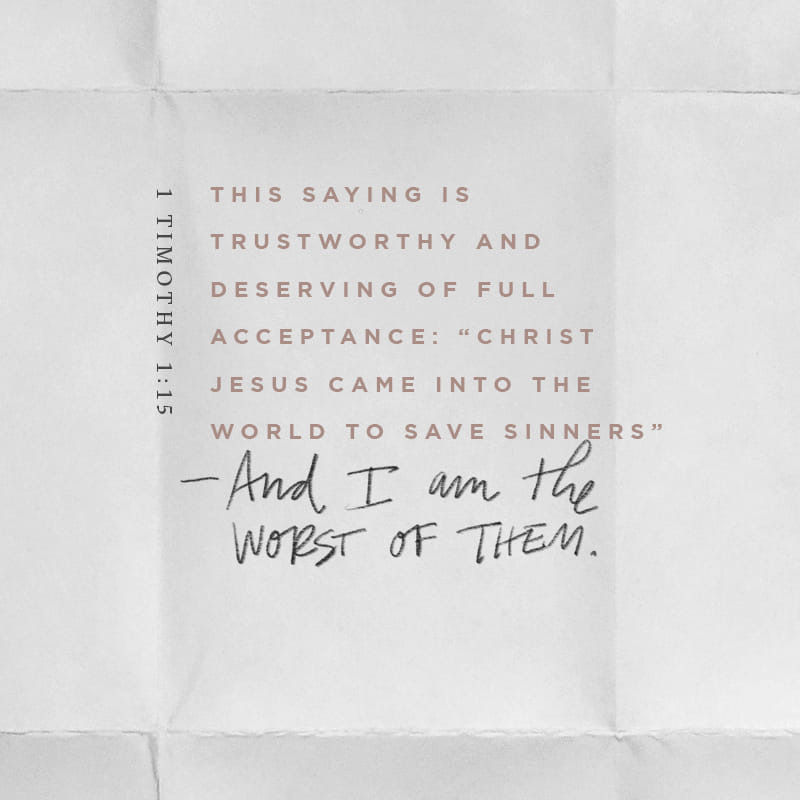 1 TIMOTHY 1:15
THIS SAYING IS
TRUSTWORTHY AND
DESERVING OF FULL
ACCEPTANCE: “CHRIST
JESUS CAME INTO THE
WORLD TO SAVE SINNERS”
—And I am the
WORST OF THEM.